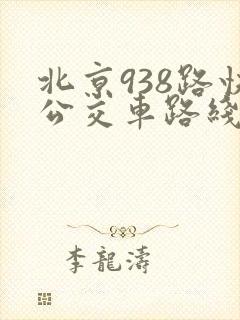 北京938路快
公交車路綫
李龍濤